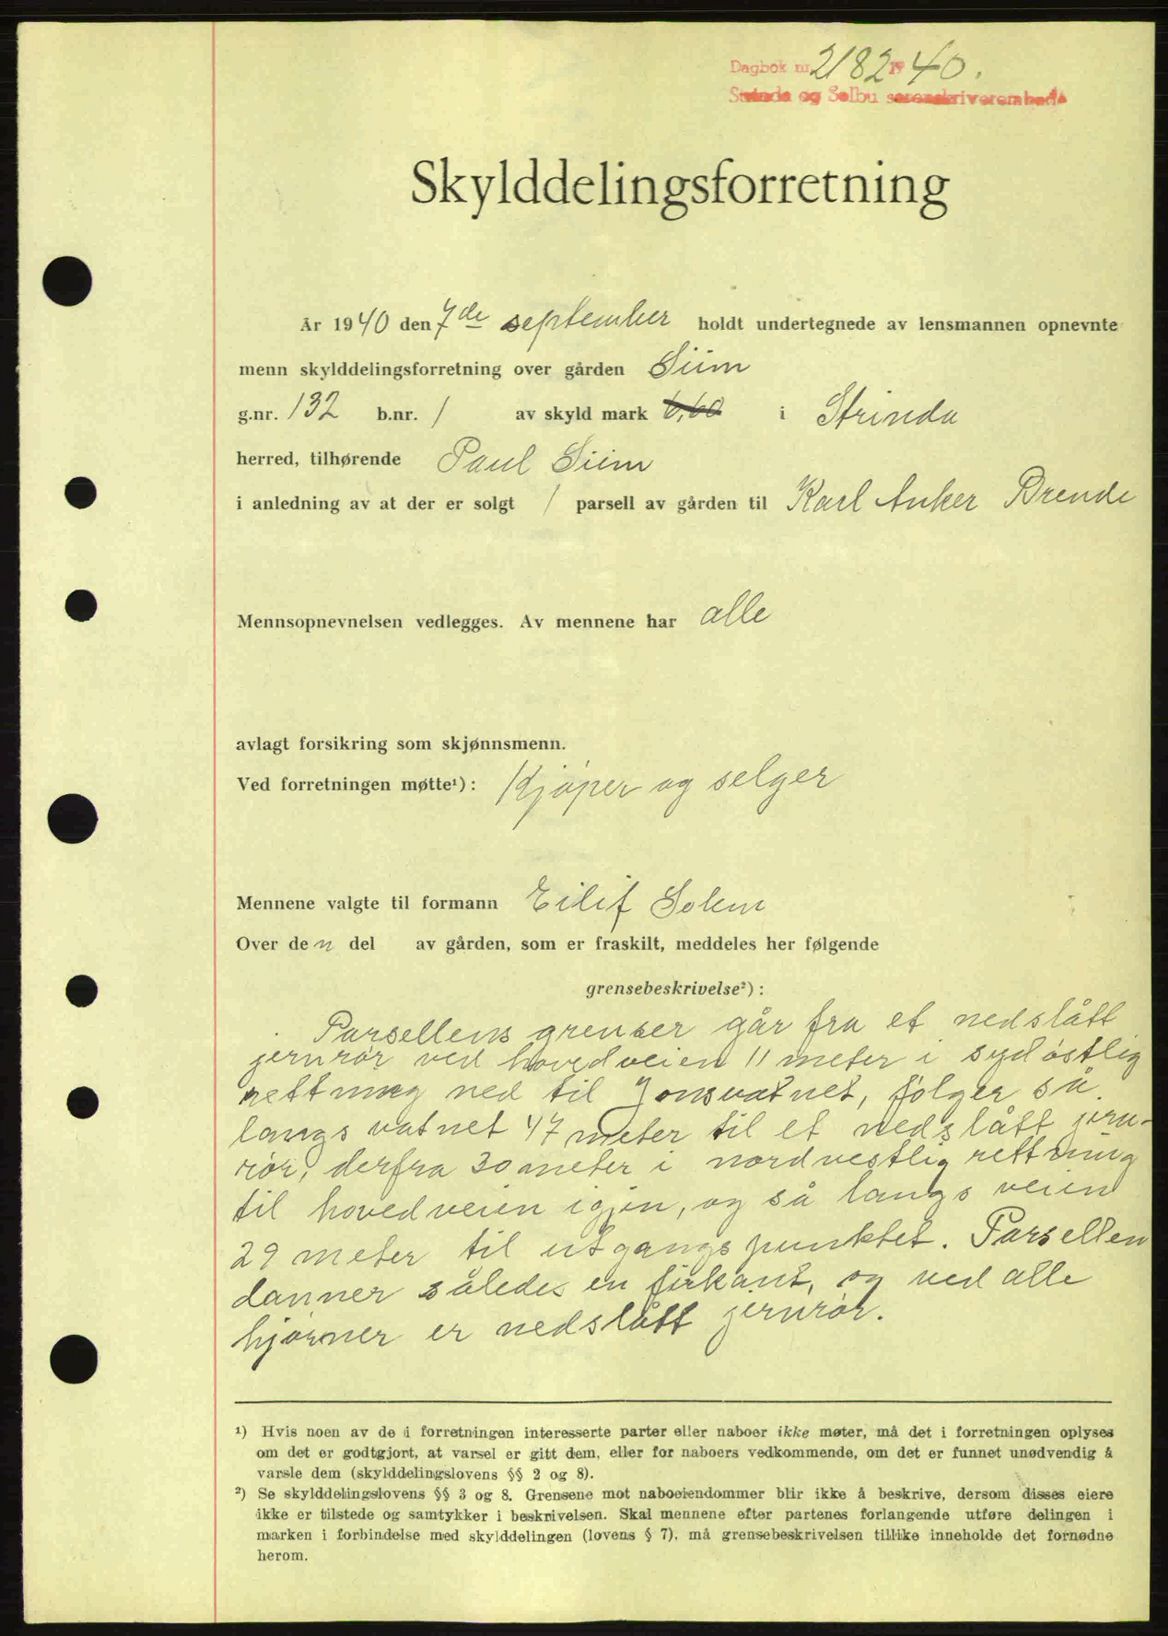 Dagbok nr 2182 19 40.
Strinda og Selbu sorenskriverembede
Skylddelingsforretning
År 1940 den 7de september holdt undertegnede av lensmannen opnevnte
menn skylddelingsforretning over gården Siim
g.nr. 132 b.nr. 1 av skyld mark 6,60 i Strinda
herred, tilhørende Paul Siim
i anledning av at der er solgt 1 parsell av gården til Karl Anker Brende
Mennsopnevnelsen vedlegges. Av mennene har alle
avlagt forsikring som skjønnsmenn.
Ved forretningen møtte¹): Kjøper og selger
Mennene valgte til formann Eilif Solem
Over den del av gården, som er fraskilt, meddeles her følgende
grensebeskrivelse²):
Parsellens grenser går fra et nedslått
jernrør ved hovedveien 11 meter i sydøstlig
rettning ned til Jonsvatnet, følger så
langs vatnet 47 meter til et nedslått jern-
rør, derfra 30 meter i nordvestlig rettning
til hovedveien igjen, og så langs veien
29 meter til utgangspunktet. Parsellen
danner således en firkant, og ved alle
hjørner er nedslått jernrør.
¹) Hvis noen av de i forretningen interesserte parter eller naboer ikke møter, må det i forretningen oplyses
om det er godtgjort, at varsel er gitt dem, eller for naboers vedkommende, om det er funnet unødvendig å
varsle dem (skylddelingslovens §§ 2 og 8).
²) Se skylddelingslovens §§ 3 og 8. Grensene mot naboeiendommer blir ikke å beskrive, dersom disses eiere
ikke er tilstede og samtykker i beskrivelsen. Skal mennene efter partenes forlangende utføre delingen i
marken i forbindelse med skylddelingen (lovens § 7), må grensebeskrivelsen tillike inneholde det fornødne
herom.